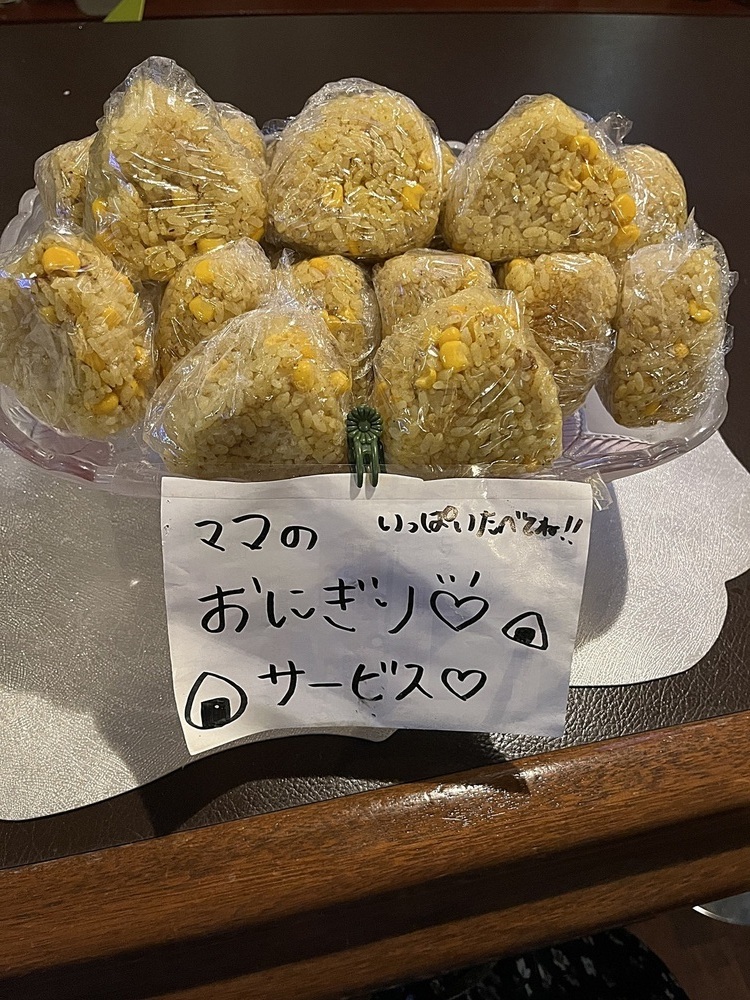 ママの
いっぱいたべてね!!
おにぎり♡
サービス♡